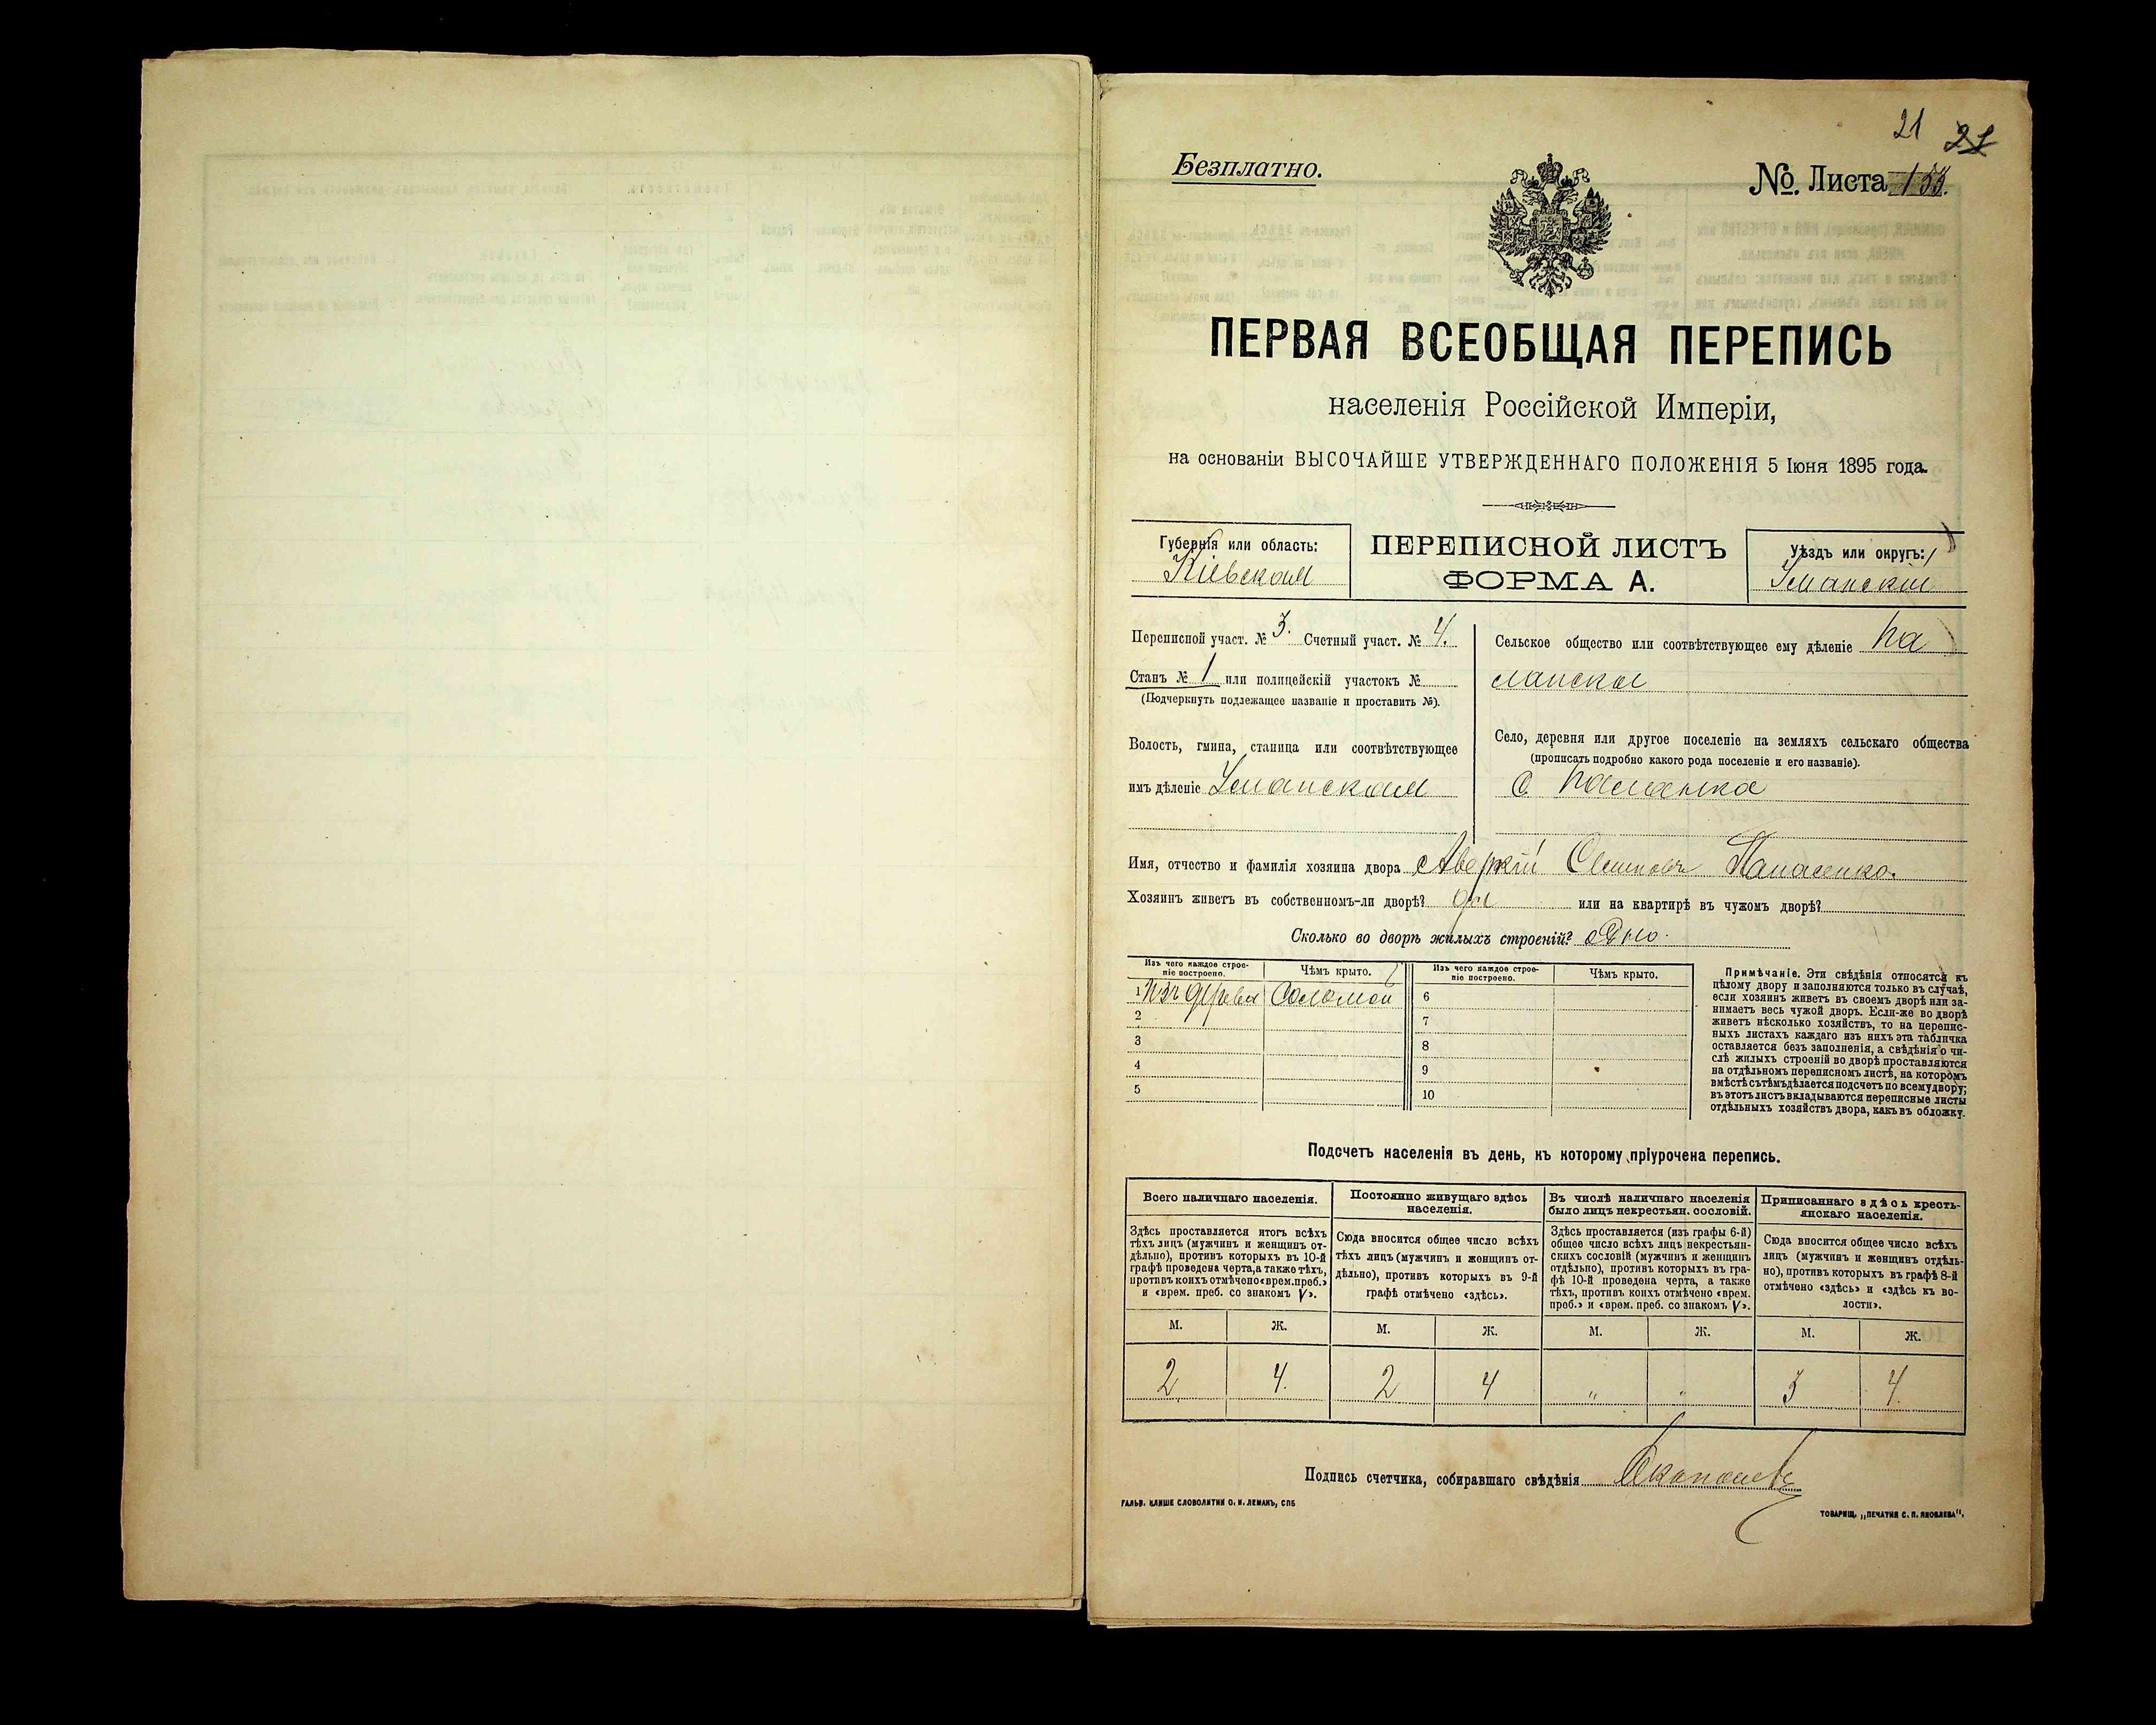 21 21
Безплатно.
№. Листа 155.
ПЕРВАЯ ВСЕОБЩАЯ ПЕРЕПИСЬ
населенія Россійской Имперіи,
на основаніи ВЫСОЧАЙШЕ УТВЕРЖДЕННАГО ПОЛОЖЕНІЯ 5 Іюня 1895 года.
Губернія или область:
Кіевская
ПЕРЕПИСНОЙ ЛИСТЪ
ФОРМА А.
Уѣздъ или округъ:
Уманскій
Переписной участ. № 3. Счетный участ. № 4.
Станъ № 1 или полицейскій участокъ №
(Подчеркнуть подлежащее названіе и проставить №).
Волость, гмина, станица или соотвѣтствующее
имъ дѣленіе Уманская
Сельское общество или соотвѣтствующее ему дѣленіе
Село, деревня или другое поселеніе на земляхъ сельскаго общества
(прописать подробно какого рода поселеніе и его названіе).
с.
Имя, отчество и фамилія хозяина двора Аверкій Осиповъ Панасенко.
Хозяинъ живетъ въ собственномъ-ли дворѣ? да или на квартирѣ въ чужомъ дворѣ?
Сколько во дворѣ жилыхъ строеній? Одно.
Изъ чего каждое строе-
ніе построено.
Чѣмъ крыто.
Изъ чего каждое строе-
ніе построено.
Чѣмъ крыто.
1 Изъ дерева Соломой 6
2 7
3 8
4 9
5 10
Примѣчаніе. Эти свѣдѣнія относятся къ
цѣлому двору и заполняются только въ случаѣ,
если хозяинъ живетъ въ своемъ дворѣ или за-
нимаетъ весь чужой дворъ. Если-же во дворѣ
живетъ нѣсколько хозяйствъ, то на перепис-
ныхъ листахъ каждаго изъ нихъ эта табличка
оставляется безъ заполненія, а свѣдѣнія о чи-
слѣ жилыхъ строеній во дворѣ проставляются
на отдѣльномъ переписномъ листѣ, на которомъ
вмѣстѣ съ тѣмъ дѣлается подсчетъ по всему двору;
въ этотъ листъ вкладываются переписные листы
отдѣльныхъ хозяйствъ двора, какъ въ обложку.
Подсчетъ населенія въ день, къ которому пріурочена перепись.
Всего наличнаго населенія.
Здѣсь проставляется итогъ всѣхъ
тѣхъ лицъ (мужчинъ и женщинъ от-
дѣльно), противъ которыхъ въ 10-й
графѣ проведена черта, а также тѣхъ,
противъ коихъ отмѣчено «врем. преб.»
и «врем. преб. со знакомъ V».
Постоянно живущаго здѣсь
населенія.
Сюда вносится общее число всѣхъ
тѣхъ лицъ (мужчинъ и женщинъ от-
дѣльно), противъ которыхъ въ 9-й
графѣ отмѣчено «здѣсь».
Въ числѣ наличнаго населенія
было лицъ некрестьян. сословій.
Здѣсь проставляется (изъ графы 6-й)
общее число всѣхъ лицъ некрестьян-
скихъ сословій (мужчинъ и женщинъ
отдѣльно), противъ которыхъ въ гра-
фѣ 10-й проведена черта, а также
тѣхъ, противъ коихъ отмѣчено «врем.
преб.» и «врем. преб. со знакомъ V».
Приписаннаго здѣсь кресть-
янскаго населенія.
Сюда вносится общее число всѣхъ
лицъ (мужчинъ и женщинъ отдѣль-
но), противъ которыхъ въ графѣ 8-й
отмѣчено «здѣсь» и «здѣсь къ во-
лости».
М. Ж. М. Ж. М. Ж. М. Ж.
2 4. 2 4 " " 3 4.
Подпись счетчика, собиравшаго свѣдѣнія
ГАЛЬВ. КЛИШЕ СЛОВОЛИТНИ О. И. ЛЕМАНЪ, СПБ
ТОВАРИЩ. „ПЕЧАТНЯ С. П. ЯКОВЛЕВА".